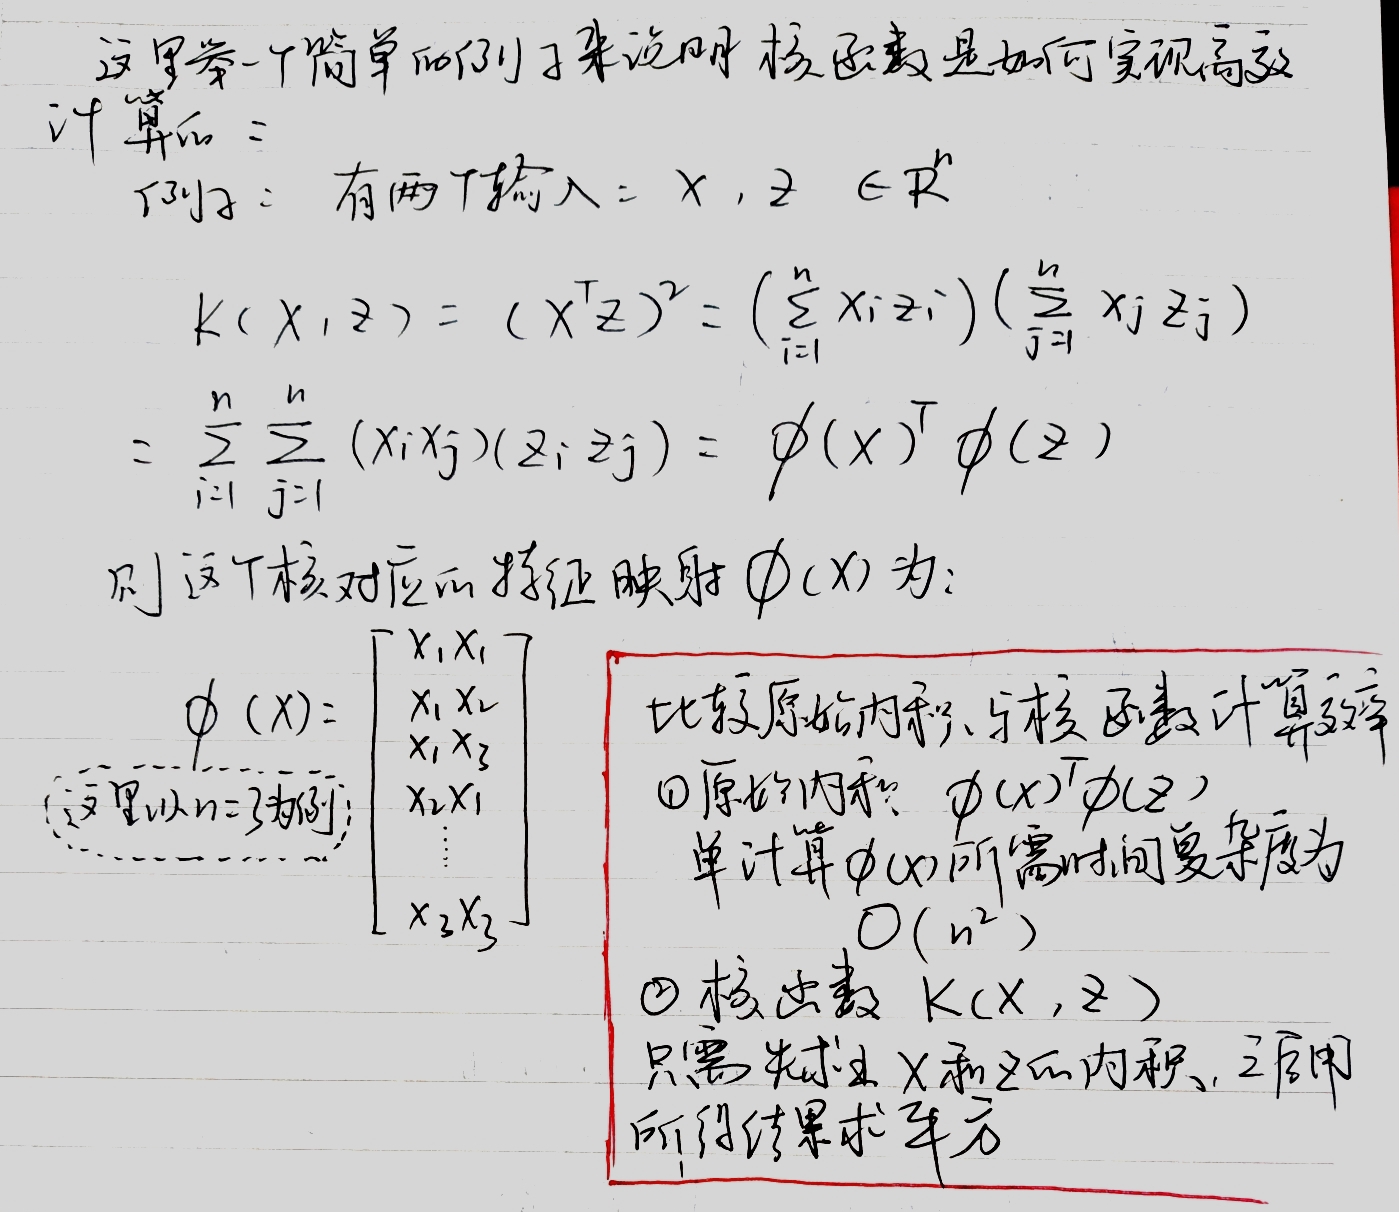 这里举一个简单的例子来说明核函数是如何实现高效
计算的:
例子: 有两个输入: x, z ∈ Rⁿ
K(x, z) = (xᵀz)² = (∑ᵢ₌₁ⁿ xᵢzᵢ)(∑ⱼ₌₁ⁿ xⱼzⱼ)
= ∑ᵢ₌₁ⁿ ∑ⱼ₌₁ⁿ (xᵢxⱼ)(zᵢzⱼ) = φ(x)ᵀφ(z)
则这个核对应的特征映射φ(x)为:
φ(x) =
这里以n=3为例
x₁x₁
x₁x₂
x₁x₃
x₂x₁
⋮
x₃x₃
比较原始内积与核函数计算效率
① 原始内积 φ(x)ᵀφ(z)
单计算φ(x)所需时间复杂度为
O(n²)
② 核函数 K(x, z)
只需先求出x和z的内积,之后用
所得结果求平方